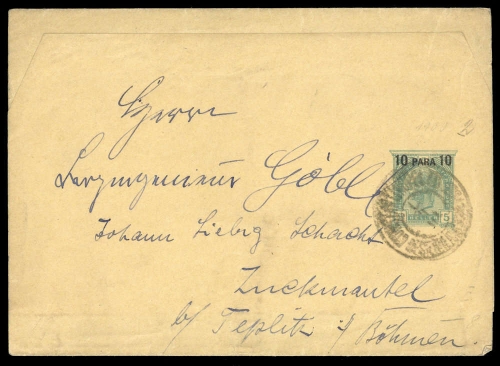 Herrn
10 PARA 10
Bergingenieur Göbl
5 HELLER 5
Johann Liebig Schacht
Zuckmantel
b/ Teplitz i/ Böhmen.